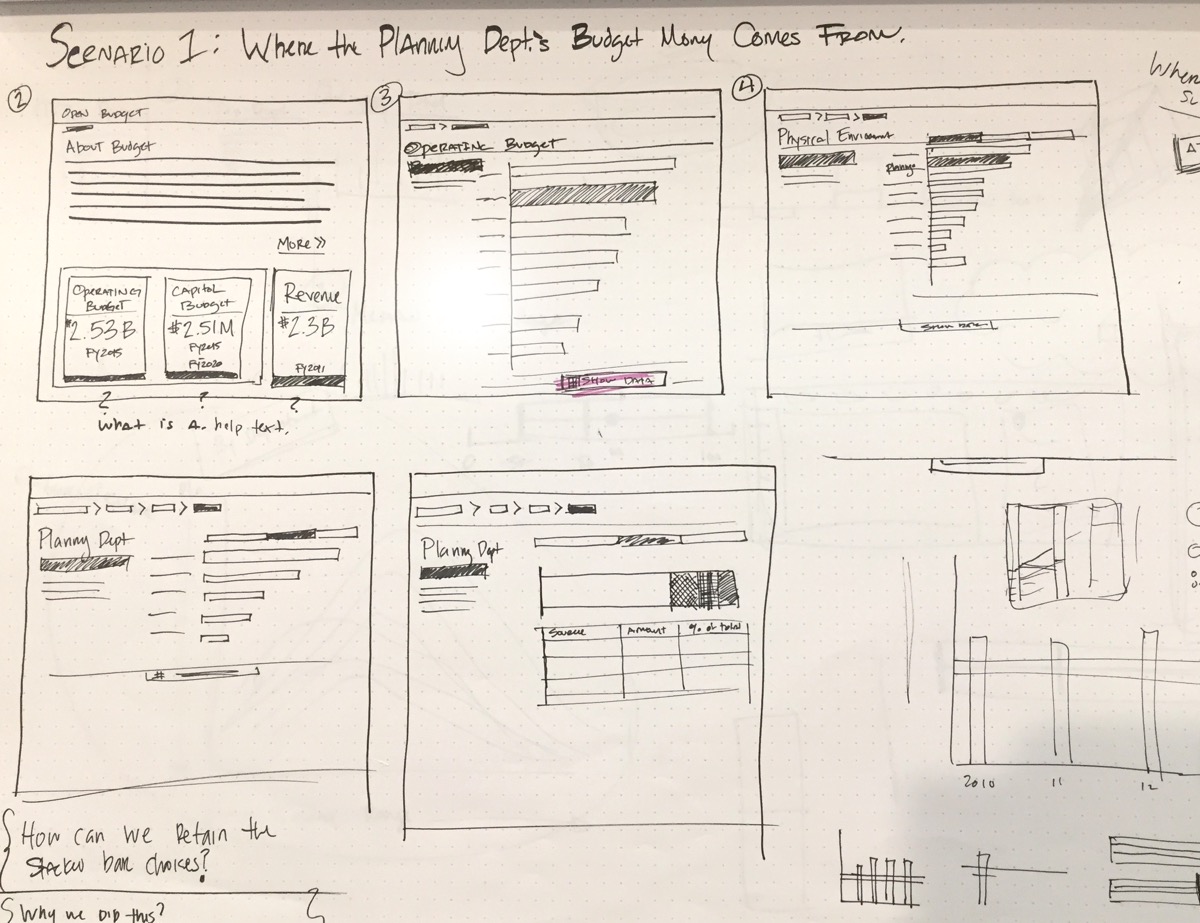 SCENARIO 1: WHERE THE PLANNIY DEPT.'S BUDGET MONY COMES FROM.
2
OPEN BUDGET
About Budget
MORE >>
OPERATING
BUDGET
$2.53B
FY2015
CAPITOL
BUDGET
$2.51M
FY2015
FY2020
Revenue
$2.3B
FY2011
? ? ?
What is a. help text.
3
OPERATING BUDGET
SHOW DATA
4
Physical Enviroment
Planning
WHEN
Planny Dept
#
Planny Dept
Source
Amount
% of total
2010
11
12
HOW CAN WE RETAIN THE
STACKED BAR CHOICES?
WHY WE DID THIS?